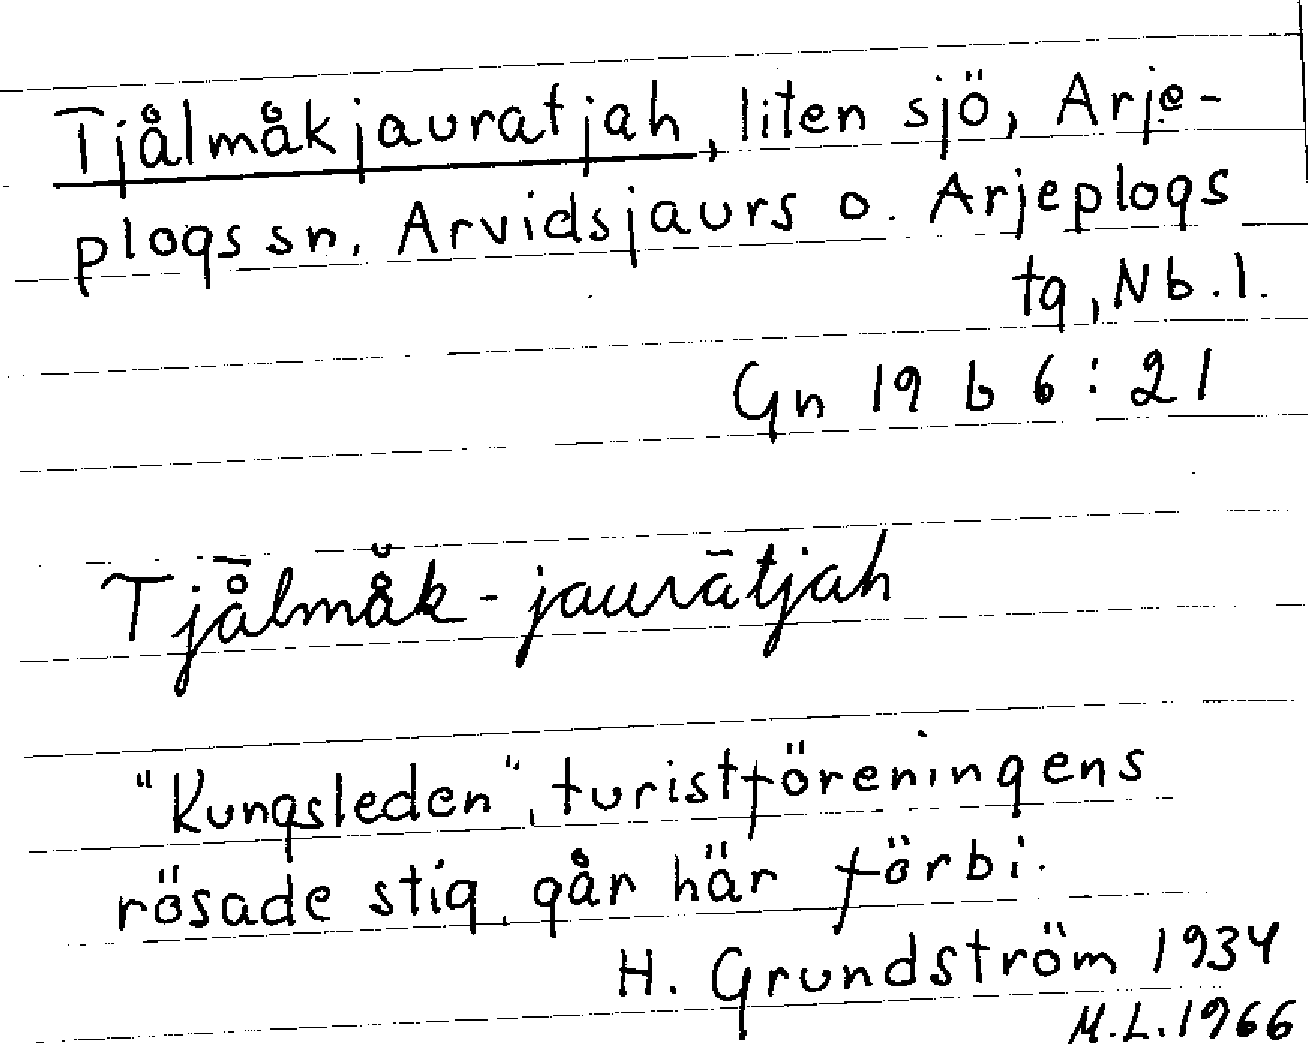 Tjålmåkjauratjah, liten sjö, Arje-
plogs sn, Arvidsjaurs o. Arjeplogs
tg, Nb.l.
Gn 19 b 6:21
Tjå̄lmå̆k-jaurātjah
"Kungsleden", turistföreningens
rösade stig, går här förbi.
H. Grundström 1934
M.L.1966